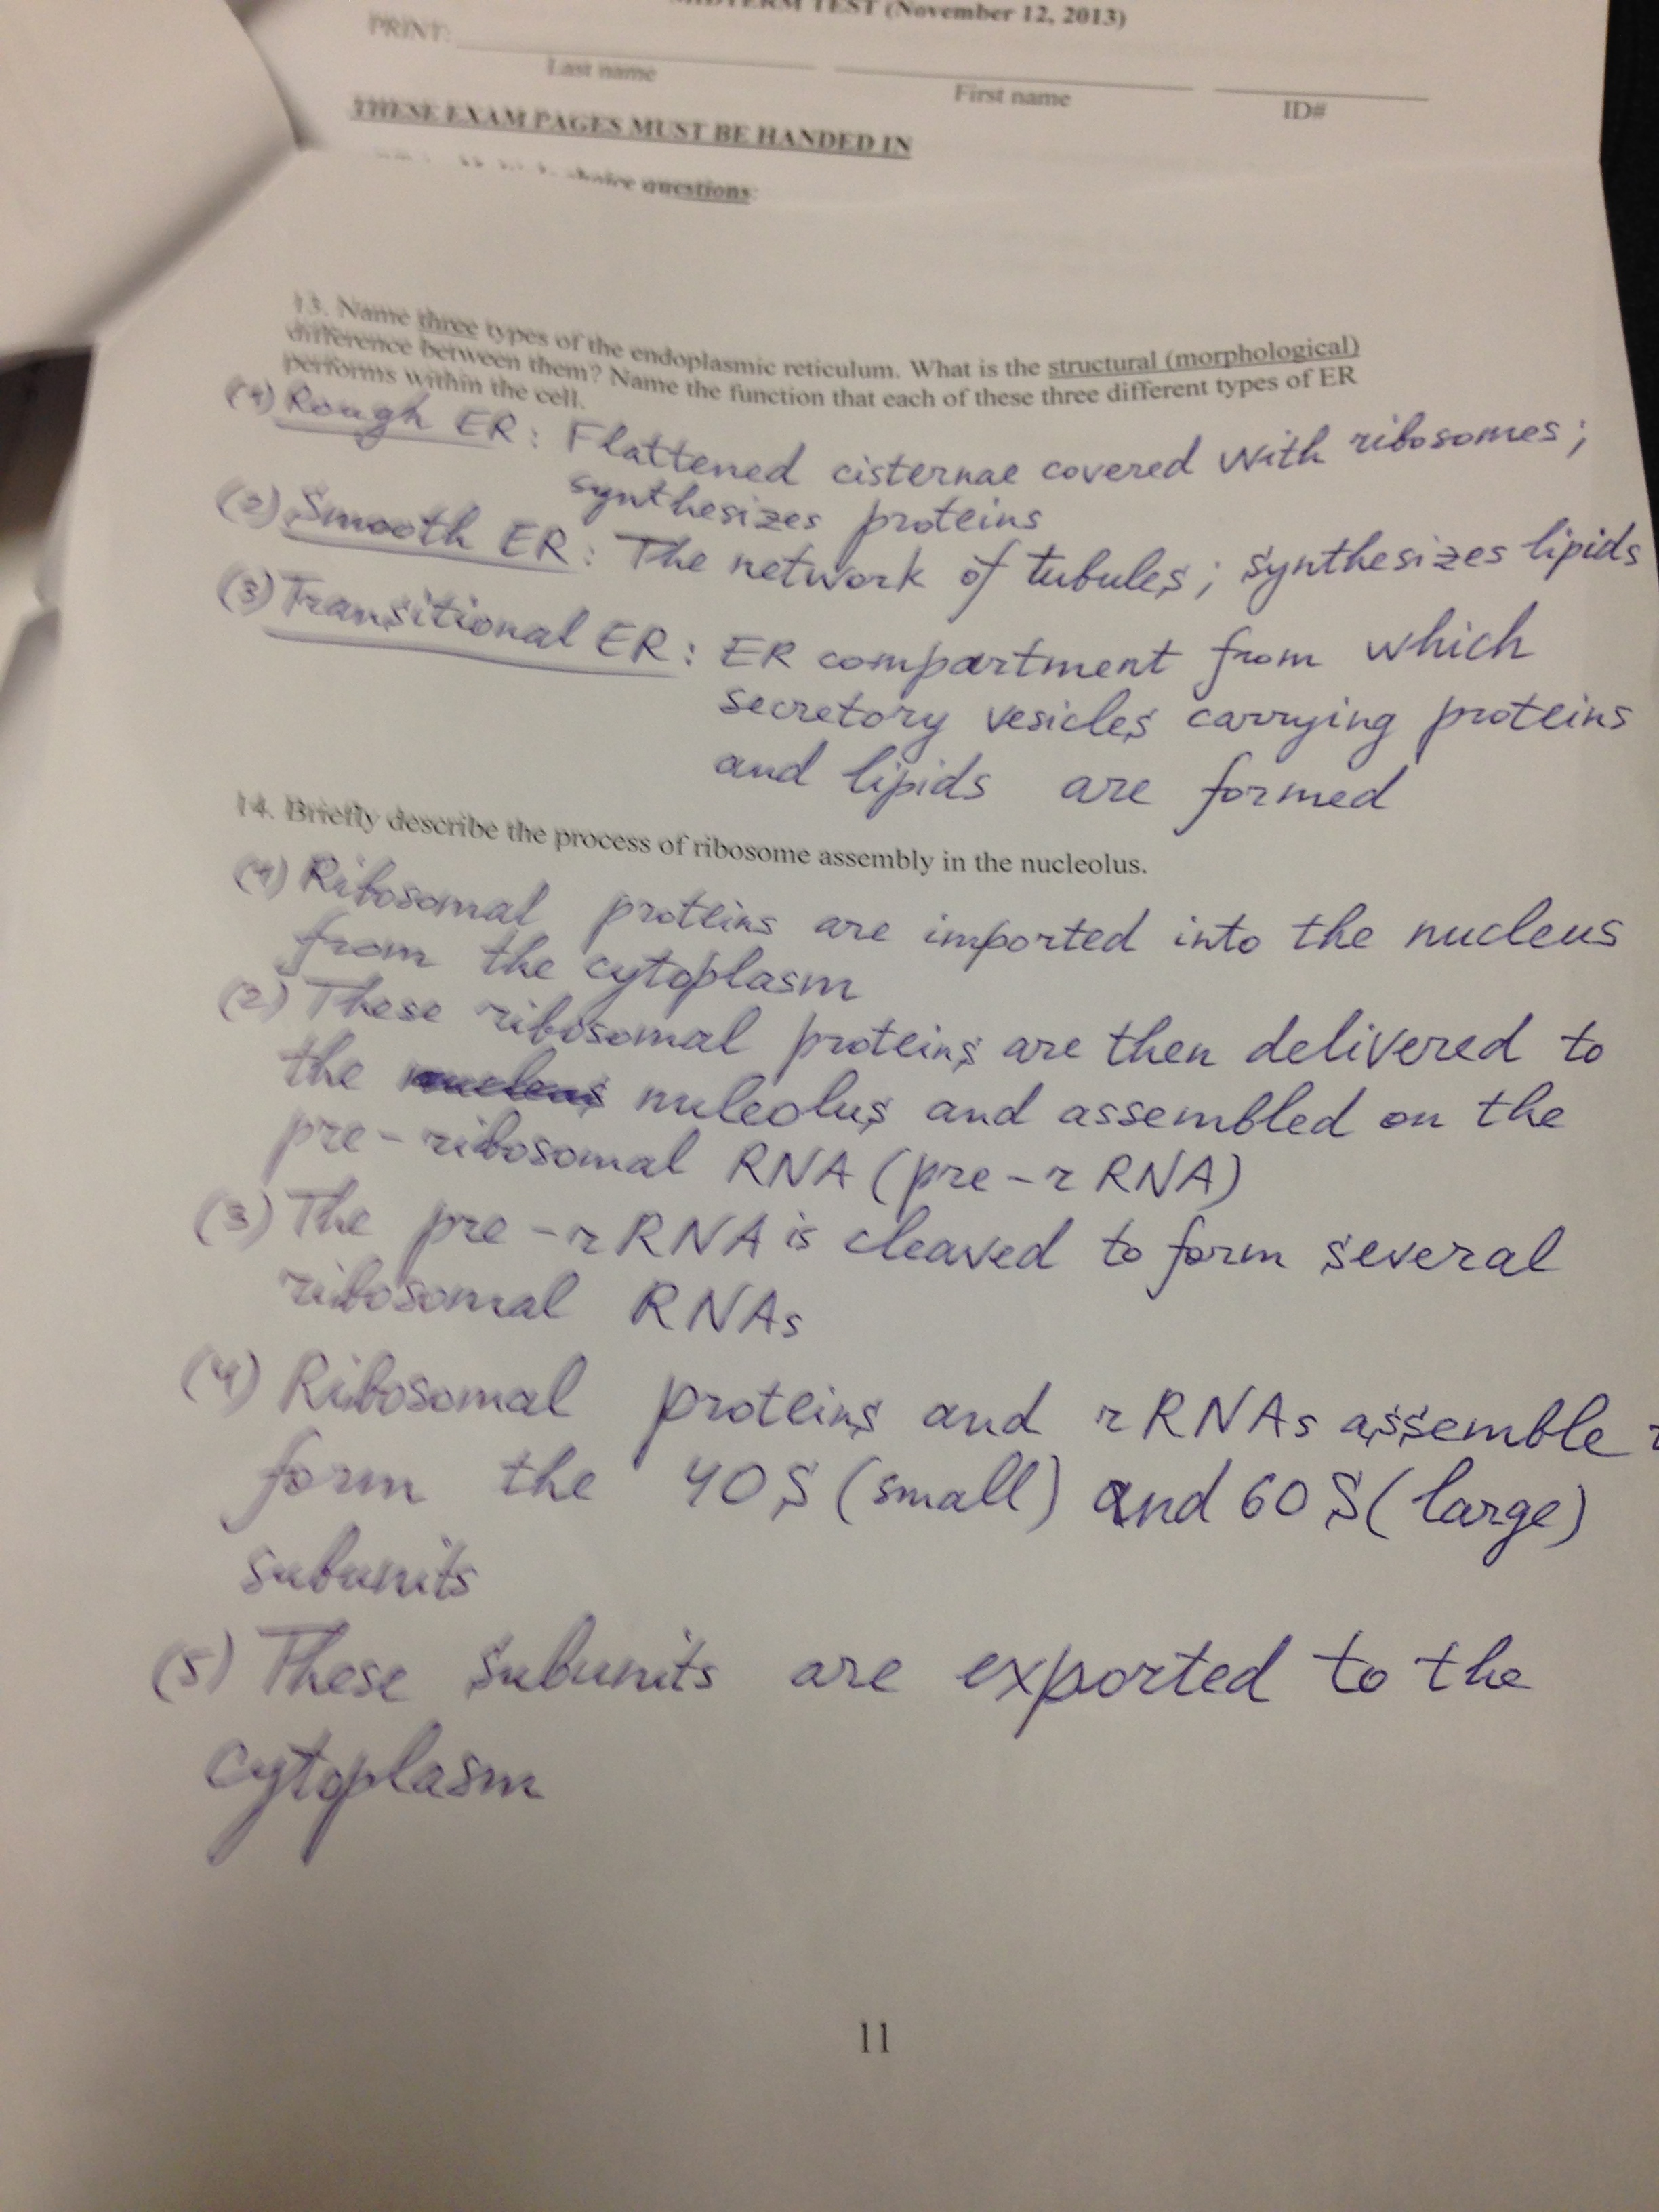 MIDTERM TEST (November 12, 2013)
PRINT:
Last name
First name
ID#
THESE EXAM PAGES MUST BE HANDED IN
choice questions:
13. Name three types of the endoplasmic reticulum. What is the structural (morphological)
difference between them? Name the function that each of these three different types of ER
performs within the cell.
(1) Rough ER: Flattened cisternae covered with ribosomes;
synthesizes proteins
(2) Smooth ER: The network of tubules; synthesizes lipids
(3) Transitional ER: ER compartment from which
secretory vesicles carrying proteins
and lipids are formed
14. Briefly describe the process of ribosome assembly in the nucleolus.
(1) Ribosomal proteins are imported into the nucleus
from the cytoplasm
(2) These ribosomal proteins are then delivered to
the nucleus nuleolus and assembled on the
pre-ribosomal RNA (pre-rRNA)
(3) The pre-rRNA is cleaved to form several
ribosomal RNAs
(4) Ribosomal proteins and rRNAs assemble
form the 40S (small) and 60S (large)
subunits
(5) These subunits are exported to the
cytoplasm
11